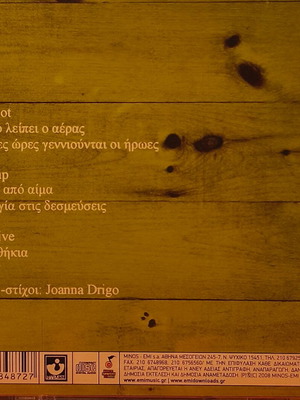 ot
λείπει ο αέρας
ες ώρες γεννιούνται οι ήρωες
από αίμα
γία στις δεσμεύσεις
ive
θήκια
-στίχοι: Joanna Drigo
MINOS - EMI α.ε. ΑΘΗΝΑ ΜΕΣΟΓΕΙΩΝ 245-7, Ν. ΨΥΧΙΚΟ 15451, ΤΗΛ. 210
ΦΑΞ. 210 6748968, 210 6756560/ ΜΕ ΤΗΝ ΕΠΙΦΥΛΑΞΗ ΚΑΘΕ ΔΙΚΑΙΩΜΑΤ
ΕΤΑΙΡΙΑΣ, ΑΠΑΓΟΡΕΥΕΤΑΙ Η ΑΝΕΥ ΑΔΕΙΑΣ ΑΝΤΙΓΡΑΦΗ, ΑΝΑΠΑΡΑΓΩΓΗ, ΔΑΝ
ΔΗΜΟΣΙΑ ΕΚΤΕΛΕΣΗ ΚΑΙ ΔΗΜΟΣΙΑ ΑΝΑΜΕΤΑΔΟΣΗ. (P)(C) 2008 MINOS-EM
www.emimusic.gr, www.emidownloads.gr
348727